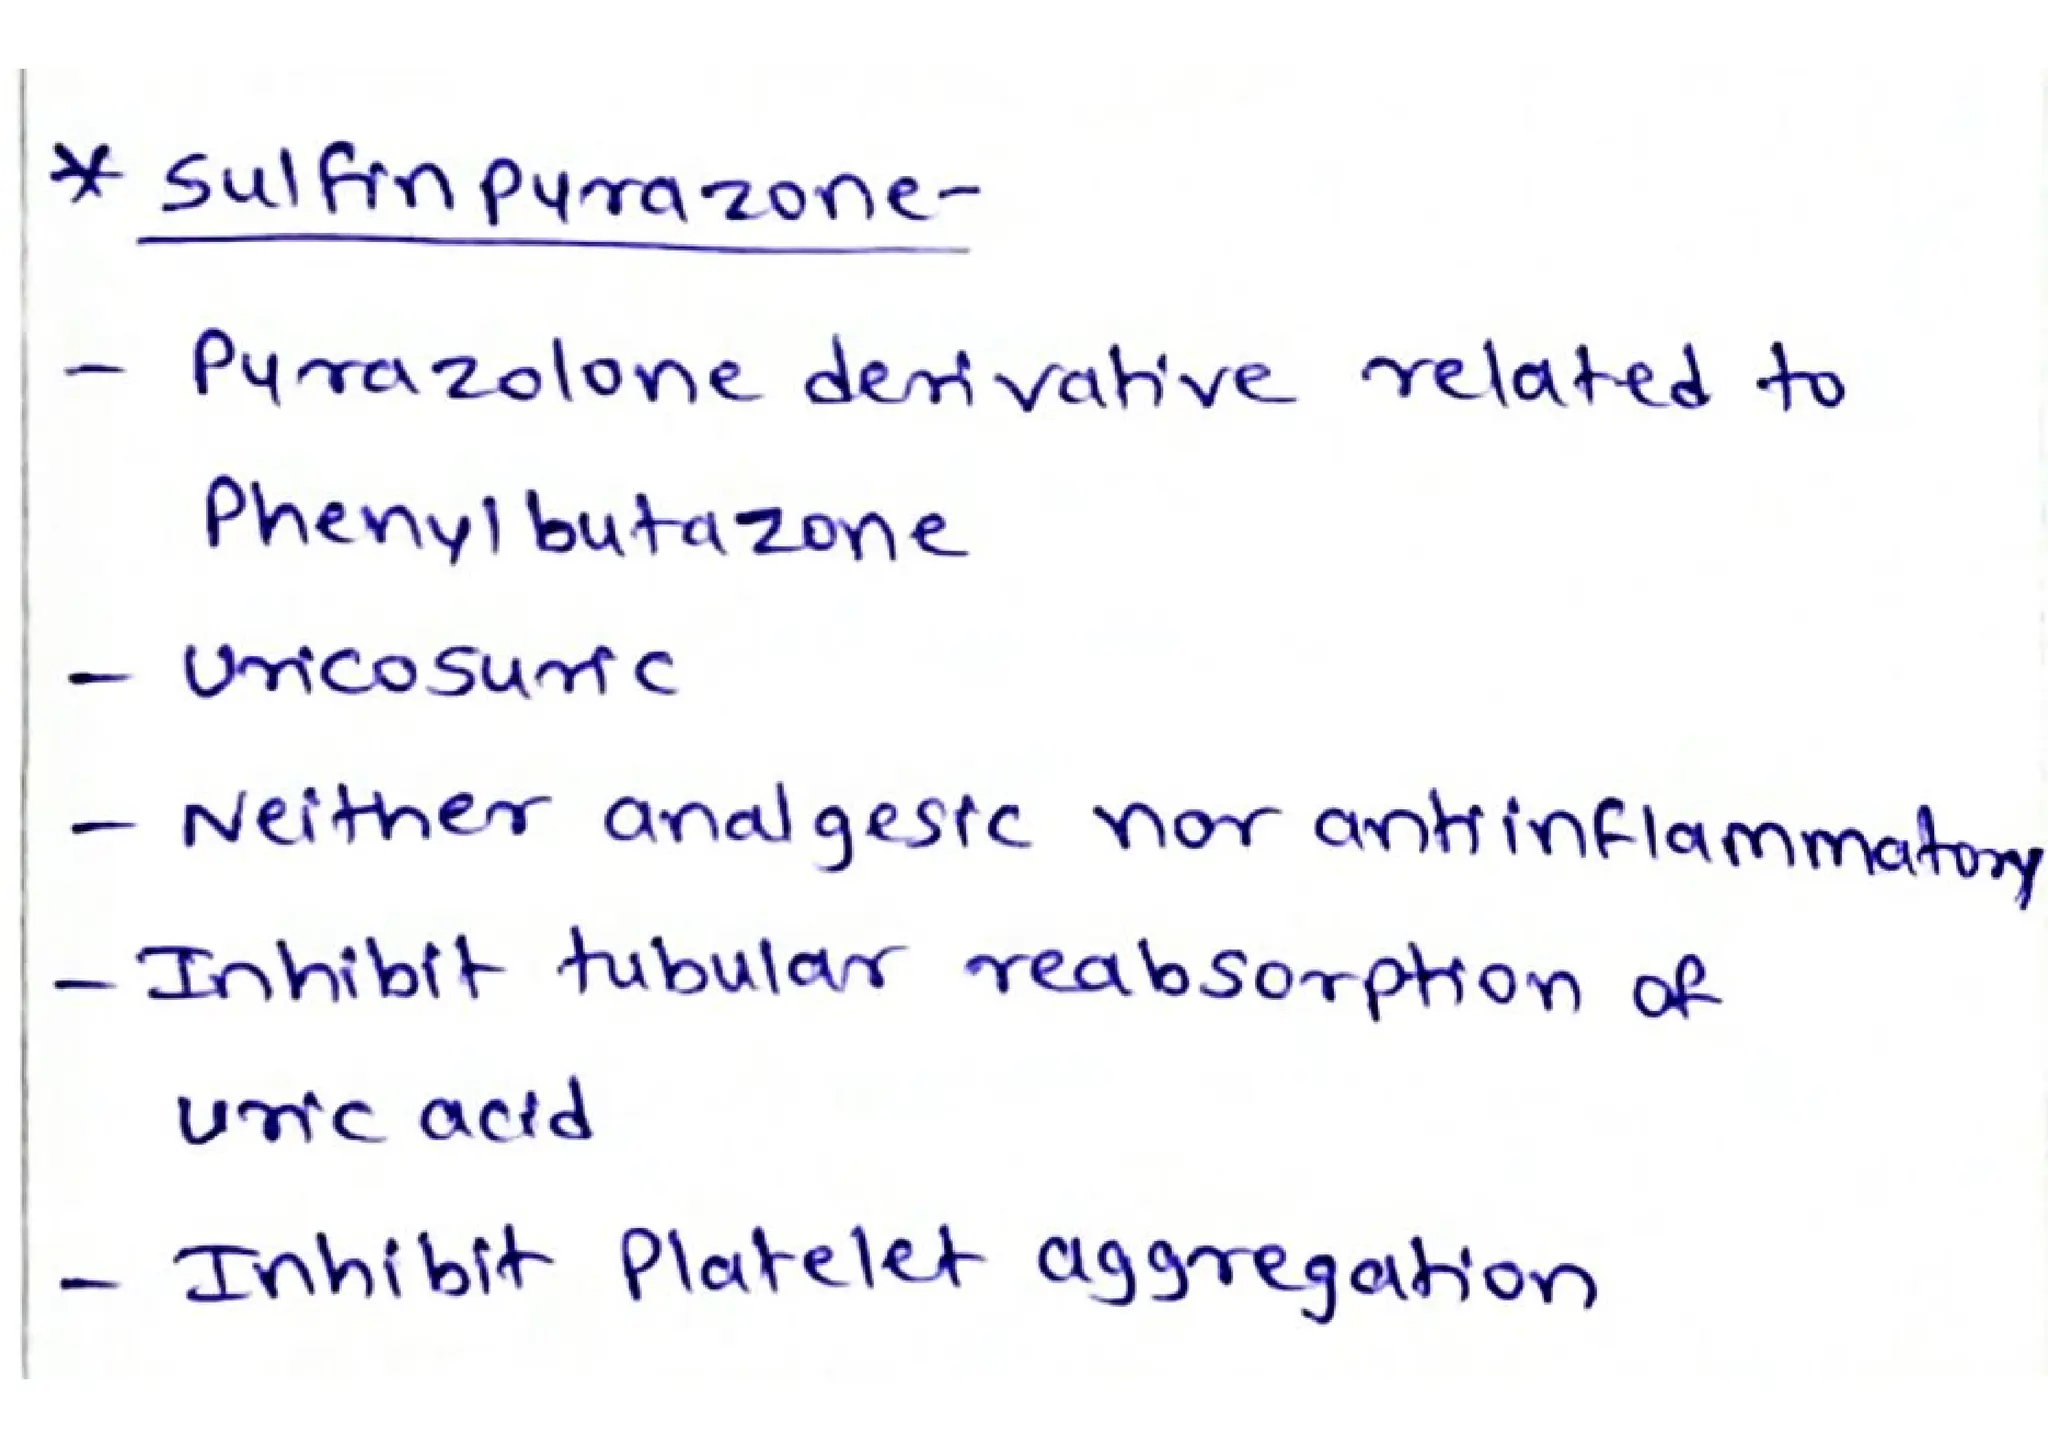 * Sulfinpyrazone-
- Pyrazolone derivative related to
Phenylbutazone
- Uricosuric
- Neither analgesic nor antiinflammatory
- Inhibit tubular reabsorption of
uric acid
- Inhibit Platelet aggregation